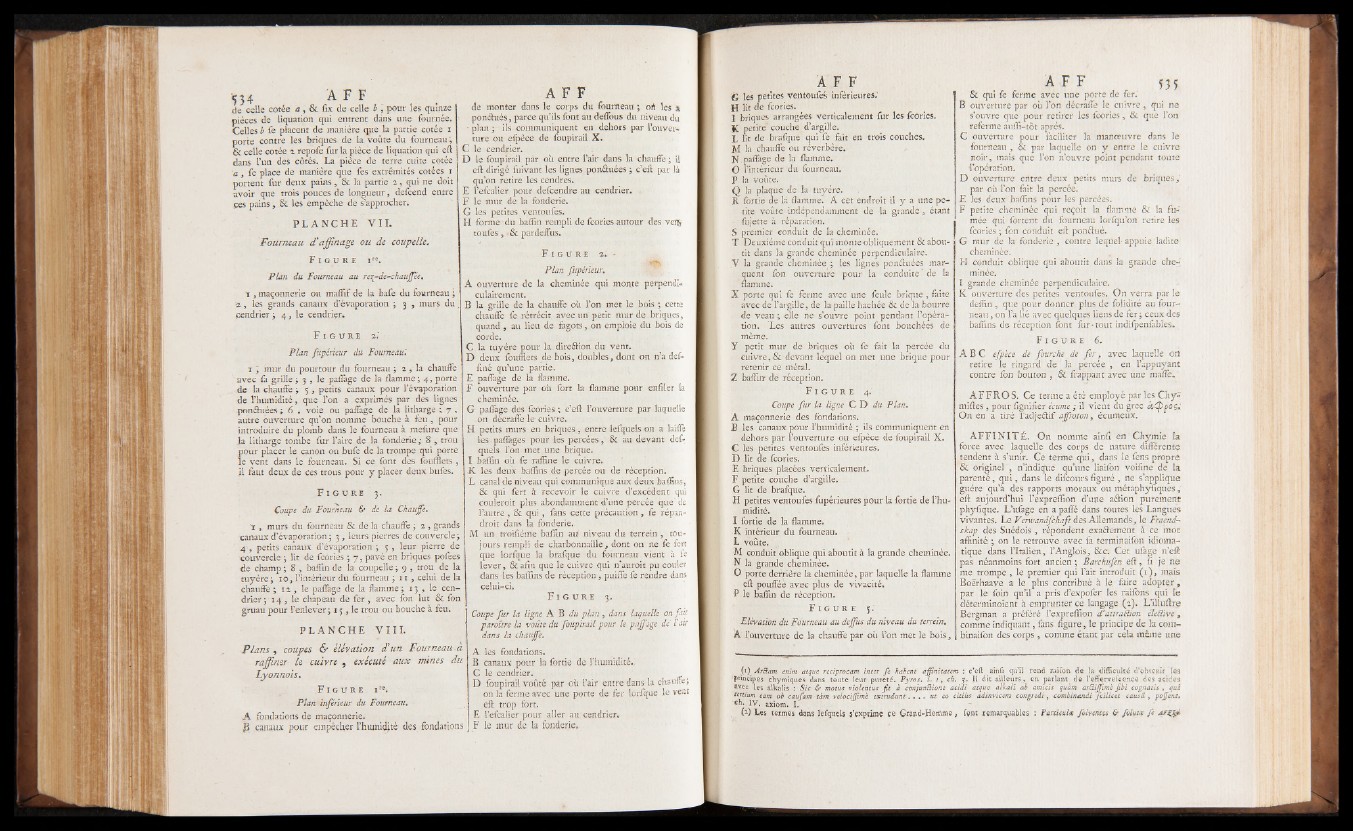 534 AFF
de celle cotée a, & fix de celle b ; pour les quinze
pièces de liquation qui entrent dans une fournée.
Celles b fe placent de manière que la partie cotée 1
porte contre les briques de la voûte du fourneau,
& celle cotée 2 repofe fur la pièce de liquation qui eft
dans l'un des côtés. La pièce de terre cuite cotée
a, fe place de manière que fes extrémités cotées 1
portent fur deux pains, & la partie 2, qui ne doit
avoir que trois pouces de longueur, defcend entre
ces pains, & les empêche de s'approcher.
PLANCHE VII.
Fourneau d'affinage ou de coupelle.
FIGURE 1re.
Plan du Fourneau au rez-de-chauffée.
1, maçonnerie ou maffif de la bafe du fourneau ;
2, les grands canaux d'évaporation ; 3, murs du
cendrier ; 4, le cendrier.
FIGURE 2.
Plan fupérieur du Fourneau.
1 ; mur du pourtour du fourneau ; 2, la chauffe
avec fa grille ; 3, le paffage de la flamme ; 4, porte
de la chauffe ; 5, petits canaux pour l'évaporation
de l'humidité, que l'on a exprimés par des lignes
ponctuées ; 6, voie ou paffage de la litharge ; 7,
autre ouverture qu'on nomme bouche à feu, pour
introduire du plomb dans le fourneau à mefure que
la litharge tombe fur l'aire de la fonderie ; 8, trou
pour placer le canon ou bufe de la trompe qui porte
le vent dans le fourneau. Si ce font des foufflets,
il faut deux de ces trous pour y placer deux bufes.
FIGURE 3.
Coupe du Fourneau & de la Chauffe.
1, murs du fourneau & de la chauffe ; 2, grands
canaux d'évaporation ; 3, leurs pierres de couvercle ;
4, petits canaux d'évaporation ; 5, leur pierre de
couvercle ; lit de fcories ; 7, pavé en briques pofées
de champ ; 8, baffin de la coupelle ; 9, trou de la
tuyère ; 10, l'intérieur du fourneau ; 11, celui de la
chauffe ; 12, le paffage de la flamme ; 13, le cen-
drier ; 14, le chapeau de fer, avec fon lut & fon
gruau pour l'enlever ; 15, le trou ou bouche à feu.
PLANCHE VIII.
Plans, coupes & élévation d'un Fourneau à
raffiner le cuivre, exécuté aux mines du
Lyonnois.
FIGURE 1re.
Plan inférieur du Fourneau.
A fondations de maçonnerie.
B canaux pour empêcher l'humidité des fondations
AFF
de monter dans le corps du fourneau ; on les a
ponctués, parce qu'ils font au deffous du niveau du
plan ; ils communiquent en dehors par l'ouver-
ture ou efpèce de foupirail X.
C le cendrier.
D le foupirail par où entre l'air dans la chauffe ; il
eft dirigé fuivant les lignes ponctuées ; c'eft par là
qu'on retire les cendres.
E l'efcalier pour defcendre au cendrier.
F le mur de la fonderie.
G les petites ventoufes.
H forme du baffin rempli de fcories autour des ven-
toufes, & pardeffus.
FIGURE 2.
Plan fupérieur.
A ouverture de la cheminée qui monte perpendi-
culairement.
B la grille de la chauffe où l'on met le bois ; cette
chauffe fe rétrécit avec un petit mur de briques,
quand, au lieu de fagots, on emploie du bois de
corde.
C la tuyère pour la direction du vent.
D deux foufflets de bois, doubles, dont on n'a def-
finé qu'une partie.
E paffage de la flamme.
F ouverture par où fort la flamme pour enfiler la
cheminée.
G paffage des fcories ; c'eft l'ouverture par laquelle
on décraffe le cuivre.
H petits murs en briques, entre lefquels on a laiffé
les paffages pour les percées, & au devant def-
quels l'on met une brique.
I baffin où fe raffine le cuivre.
K les deux baffins de percée ou de réception.
L canal de niveau qui communique aux deux baffins,
& qui fert à recevoir le cuivre d'excédent qui
couleroit plus abondamment d'une percée que de
l'autre, & qui, fans cette précaution, fe répan-
droit dans la fonderie.
M un troifième baffin au niveau du terrein, tou-
jours rempli de charbonnaille, dont on ne fe fert
que lorfque la brafque du fourneau vient à fe
lever, & afin que le cuivre qui n'auroit pu couler
dans les baffins de réception, puiffe fe rendre dans
celui-ci.
FIGURE 3.
Coupe fur la ligne A B du plan, dans laquelle on fait
paroître la voûte du foupirail pour le paffage de l'air
dans la chauffe.
A les fondations.
B canaux pour la fortie de l'humidité.
C le cendrier.
D foupirail voûté par où l'air entre dans la chauffe ;
on la ferme avec une porte de fer lorfque le vent
eft trop fort.
E l'efcalier pour aller au cendrier.
F le mur de la fonderie.
AFF
G les petites ventoufes inférieures.
H lit de fcories.
I briques arrangées verticalement fur les fcories.
K petite couche d'argille.
L lit de brafque qui fe fait en trois couches.
M la chauffe ou réverbère.
N paffage de la flamme.
O l'intérieur du fourneau.
P la voûte.
Q la plaque de la tuyère.
R fortie de la flamme. A cet endroit il y a une pe-
tite voûte indépendamment de la grande, étant
fujette à réparation.
S premier conduit de la cheminée.
T Deuxième conduit qui monte obliquement & abou-
tit dans la grande cheminée perpendiculaire.
V la grande cheminée ; les lignes ponctuées mar-
quent fon ouverture pour la conduite de la
flamme.
X porte qui fe ferme avec une feule brique, faite
avec de l'argille, de la paille hachée & de la bourre
de veau ; elle ne s'ouvre point pendant l'opéra-
tion. Les autres ouvertures font bouchées de
même.
Y petit mur de briques où fe fait la percée du
cuivre, & devant lequel on met une brique pour
retenir ce métal.
Z baffin de réception.
FIGURE 4.
Coupe fur la ligne C D du Plan.
A maçonnerie des fondations.
B les canaux pour l'humidité ; ils communiquent en
dehors par l'ouverture ou efpèce de foupirail X.
C les petites ventoufes inférieures.
D lit de fcories.
E briques placées verticalement.
F petite couche d'argille.
G lit de brafque.
H petites ventoufes fupérieures pour la fortie de l'hu-
midité.
I fortie de la flamme.
K intérieur du fourneau.
L voûte.
M conduit oblique qui aboutit à la grande cheminée.
N la grande cheminée.
O porte derrière la cheminée, par laquelle la flamme
eft pouffée avec plus de vivacité.
P le baffin de réception.
FIGURE 5.
Elévation du Fourneau au deffus du niveau du terrein.
A l'ouverture de la chauffe par où l'on met le bois,
AFF 535
& qui fe ferme avec une porte de fer.
B ouverture par où l'on décraffe le cuivre, qui ne
s'ouvre que pour retirer les fcories, & que l'on
referme auffi-tôt après.
C ouverture pour faciliter la manœuvre dans le
fourneau, & par laquelle on y entre le cuivre
noir, mais que l'on n'ouvre point pendant toute
l'opération.
D ouverture entre deux petits murs de briques,
par où l'on fait la percée.
E les deux baffins pour les percées.
F petite cheminée qui reçoit la flamme & la fu-
mée qui fortent du fourneau lorfqu'on retire les
fcories ; fon conduit eft ponctué.
G mur de la fonderie, contre lequel appuie ladite
cheminée.
H conduit oblique qui aboutit dans la grande che-
minée.
I grande cheminée perpendiculaire.
K ouverture des petites ventoufes. On verra par le
deffin, que pour donner plus de folidité au four-
neau, on l'a lié avec quelques liens de fer ; ceux des
baffins de réception font fur-tout indifpenfables.
FIGURE 6.
A B C efpèce de fourche de fer, avec laquelle on
retire le ringard de la percée, en l'appuyant
contre fon bouton, & frappant avec une maffe.
AFFROS. Ce terme a été employé par les Chy-
miftes, pour fignifier écume ; il vient du grec ἀφρός.
On en a tiré l'adjectif affroton, écumeux.
AFFINITÉ. On nomme ainfi en Chymie la
force avec laquelle des corps de nature différente
tendent à s'unir. Ce terme qui, dans le fens propre
& originel, n'indique qu'une liaifon voifine de la
parenté, qui, dans le difcours figuré, ne s'applique
guère qu'à des rapports moraux ou métaphyfiques,
eft aujourd'hui l'expreffion d'une action purement
phyfique. L'ufage en a paffé dans toutes les Langues
vivantes. Le Verwandfchaft des Allemands, le Fraend-
skap des Suédois, répondent exactement à ce mot
affinité ; on le retrouve avec fa terminaifon idioma-
tique dans l'Italien, l'Anglois, &c. Cet ufage n'eft
pas néanmoins fort ancien ; Barchufen eft, fi je ne
me trompe, le premier qui l'ait introduit (1), mais
Boërhaave a le plus contribué à le faire adopter,
par le foin qu'il a pris d'expofer les raifons qui le
déterminoient à emprunter ce langage (2). L'illuftre
Bergman a préféré l'expreffion d'attraction élective,
comme indiquant, fans figure, le principe de la com-
binaifon des corps, comme étant par cela même une
(1) Arctam enim atque reciprocam inter fe habent affinitatem ; c'eft ainfi qu'il rend raifon de la difficulté d'obtenir les
principes chymiques dans toute leur pureté. Pyrof. l. 1, ch. 3. Il dit ailleurs, en parlant de l'effervefcence des acides
avec les alkalis : Sic & motus violentus fit à conjunctione acidi atque alkali ob amicis quàm arctiffimè fibi cognatis, quid
tertium cum ob caufam tàm velociffimè extrudant . . . . ut eò citiùs adinvicem congredi, combinandi fcilicet causâ, poffent.
ch. IV. axiom. I.
(2) Les termes dans lefquels s'exprime ce Grand-Homme, font remarquables : Particulæ folventes & folutæ fe